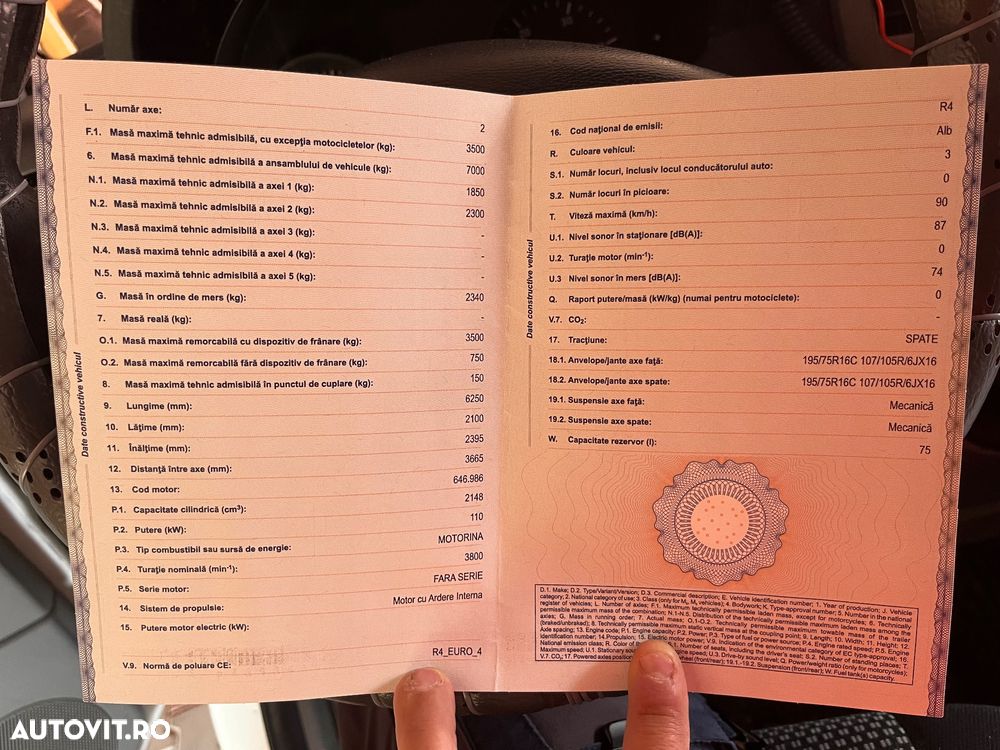 L. Număr axe: 2
F.1. Masă maximă tehnic admisibilă, cu excepția motocicletelor (kg): 3500
6. Masă maximă tehnic admisibilă a ansamblului de vehicule (kg): 7000
N.1. Masă maximă tehnic admisibilă a axei 1 (kg): 1850
N.2. Masă maximă tehnic admisibilă a axei 2 (kg): 2300
N.3. Masă maximă tehnic admisibilă a axei 3 (kg): -
N.4. Masă maximă tehnic admisibilă a axei 4 (kg): -
N.5. Masă maximă tehnic admisibilă a axei 5 (kg): -
G. Masă în ordine de mers (kg): 2340
7. Masă reală (kg):
O.1. Masă maximă remorcabilă cu dispozitiv de frânare (kg): 3500
O.2. Masă maximă remorcabilă fără dispozitiv de frânare (kg): 750
8. Masă maximă tehnic admisibilă în punctul de cuplare (kg): 150
9. Lungime (mm): 6250
10. Lățime (mm): 2100
11. Înălțime (mm): 2395
12. Distanță între axe (mm): 3665
13. Cod motor: 646.986
P.1. Capacitate cilindrică (cm³): 2148
P.2. Putere (kW): 110
P.3. Tip combustibil sau sursă de energie: MOTORINA
P.4. Turație nominală (min-1): 3800
P.5. Serie motor: FARA SERIE
14. Sistem de propulsie: Motor cu Ardere Interna
15. Putere motor electric (kW):
V.9. Normă de poluare CE: R4_EURO_4
Date constructive vehicul
16. Cod național de emisii: R4
R. Culoare vehicul: Alb
S.1. Număr locuri, inclusiv locul conducătorului auto: 3
S.2. Număr locuri în picioare: 0
T. Viteză maximă (km/h): 90
U.1. Nivel sonor în staționare [dB(A)]: 87
U.2. Turație motor (min-1): 0
U.3 Nivel sonor în mers [dB(A)]: 74
Q. Raport putere/masă (kW/kg) (numai pentru motociclete): 0
V.7. CO2: -
17. Tracțiune: SPATE
18.1. Anvelope/jante axe față: 195/75R16C 107/105R/6JX16
18.2. Anvelope/jante axe spate: 195/75R16C 107/105R/6JX16
19.1. Suspensie axe față: Mecanică
19.2. Suspensie axe spate: Mecanică
W. Capacitate rezervor (l): 75
Date constructive vehicul
D.1. Make; D.2. Type/Variant/Version; D.3. Commercial description; E. Vehicle identification number; 1. Year of production; J. Vehicle
category; 2. National category of use; 3. Class (only for M2, M3 vehicles); 4. Bodywork; K. Type-approval number; 5. Number in the national
register of vehicles; L. Number of axles; F.1. Maximum technically permissible laden mass, except for motorcycles; 6. Technically
permissible maximum mass of the combination; N.1-N.5. Distribution of the technically permissible maximum laden mass among the
axles; G. Mass in running order; 7. Actual mass; O.1-O.2. Technically permissible maximum towable mass of the trailer
(braked/unbraked); 8. Technically permissible maximum static vertical mass at the coupling point; 9. Length; 10. Width; 11. Height; 12.
Axle spacing; 13. Engine code; P.1. Engine capacity; P.2. Power; P.3. Type of fuel or power source; P.4. Engine rated speed; P.5. Engine
identification number; 14. Propulsion; 15. Electric motor power; V.9. Indication of the environmental category of EC type-approval; 16.
National emission class; R. Color of the 1. Number of seats, including the driver's seat; S.2. Number of standing places; T.
Maximum speed; U.1. Stationary sou speed; U.3. Drive-by sound level; Q. Power/weight ratio (only for motorcycles);
V.7. CO2; 17. Powered axles position wheel (front/rear); 19.1.-19.2. Suspension (front/rear); W. Fuel tank(s) capacity.
AUTOVIT.RO